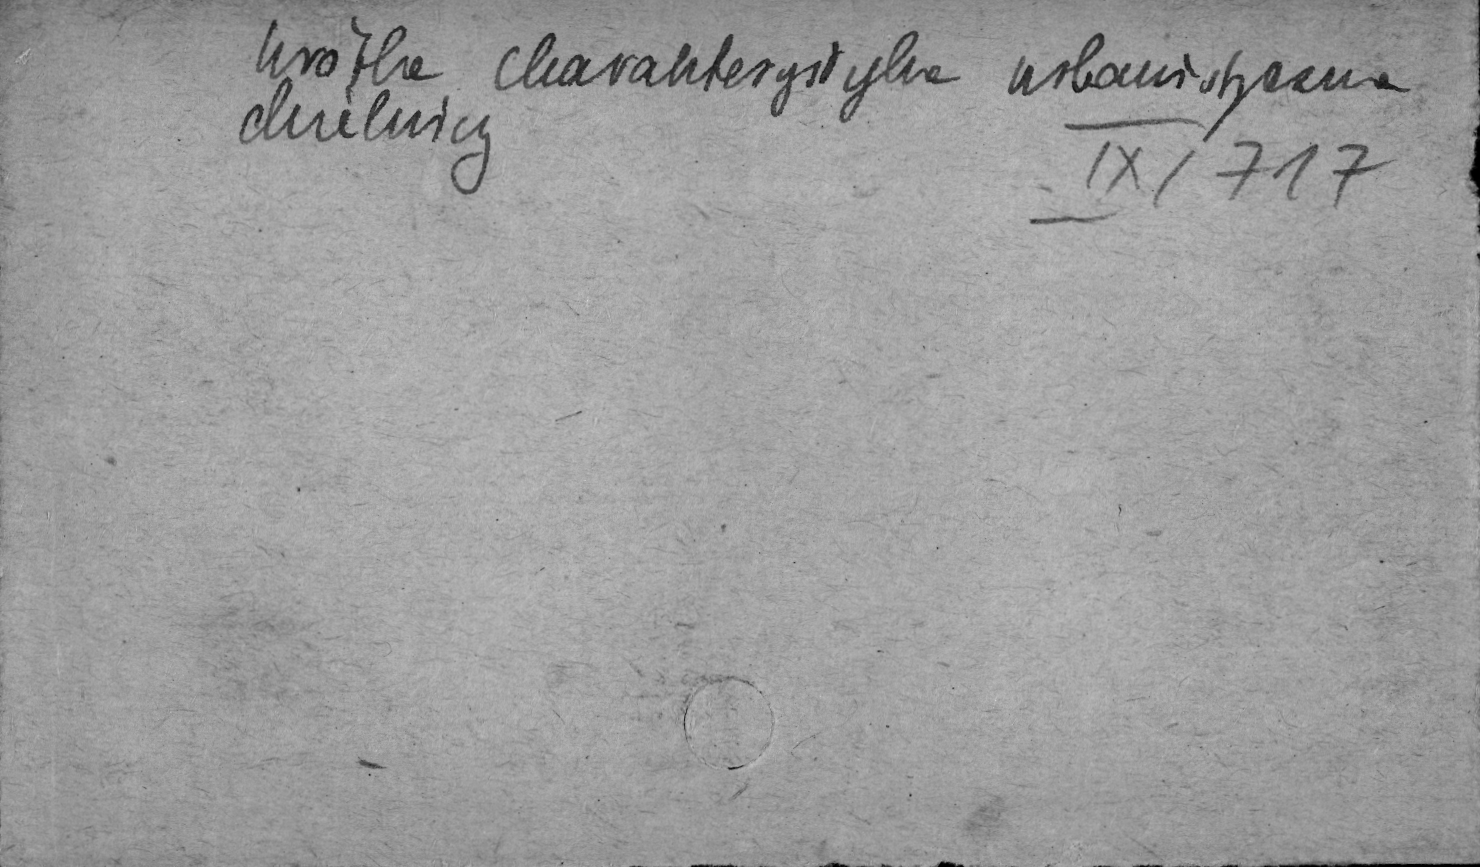 krótka charakterystyka urbanistyczna
dzielnicy
IX/717